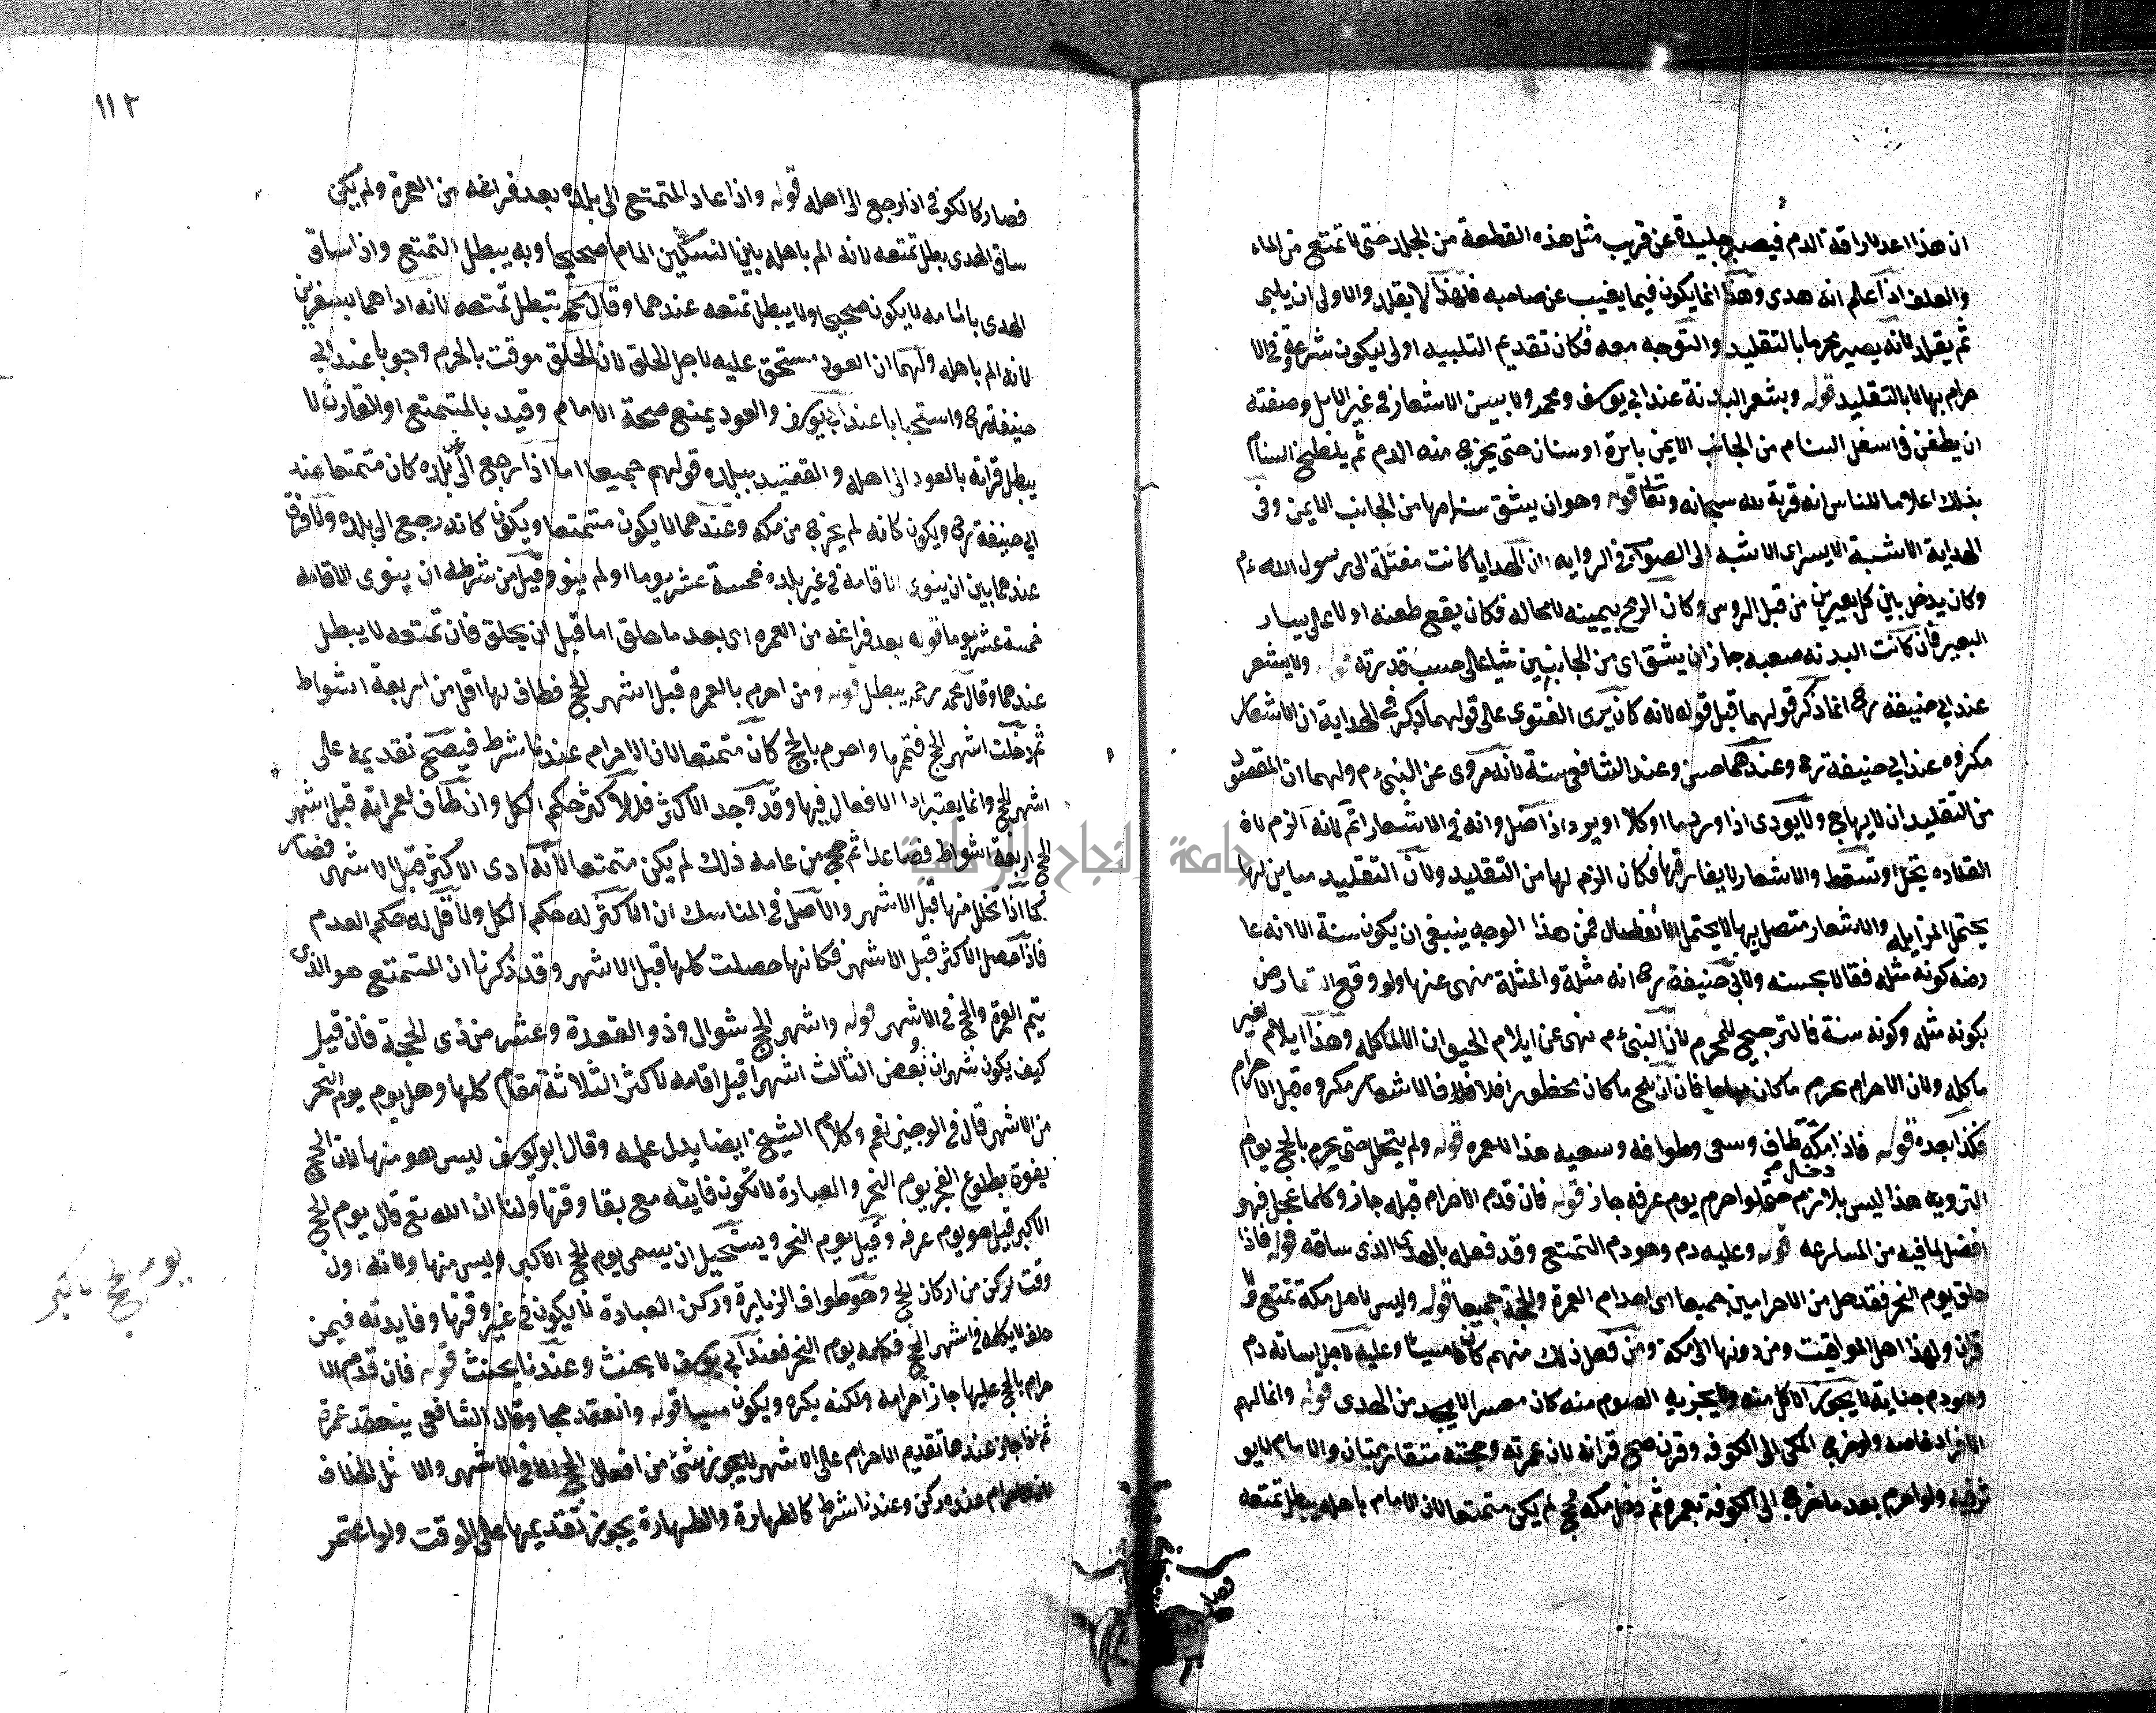 ان هذا اعد لاراقة الدم فيصير جليدة عن قريب مثل هذه القطعة من الجلد حتى لا تمتنع من الماء
والعلف اذا علم انه هدى وهذا انما يكون فيما يغيب عن صاحبه فلهذا لا يقلد والاولى ان يلبى
ثم يقلد لانه يصير محرما بالتقليد والتوجه معه فكان تقديم التلبيه اولى ليكون شرعة فى الا
حرام بها لا بالتقليد قوله ويشعر البدنة عند ابى يوسف ومحمد ولا يسن الاشعار فى غير الابل وصفته
ان يطعن فى اسفل السنام من الجانب الايمن بابرة او سنان حتى يخرج منه الدم ثم يلطخ السنام
بذلك اعلاما للناس انه قربة لله سبحانه وتعالى قوله وهو ان يشق سنامها من الجانب الايمن وفى
الهداية الاشبه الايسر اى الاشبه الى الصواب فى الروايه ان الهدايا كانت مقبلة الى رسول الله ءم
وكان يدخل بين كل بعيرين من قبل الروس وكان الرمح بيمينه لا محاله فكان يقع طعنه اولا على يسار
البعير فان كانت البدنه صعبه جاز ان يشق اى من الجانبين شيا على حسب قدرته قوله ولا يشعر
عند ابى حنيفة رح انما ذكر قولهما قبل قوله لانه كان يرى الفتوى على قولهما ذكر فى الهداية ان الاشعار
مكروه عند ابى حنيفة رح وعندهما حسن وعند الشافعى سنة لانه مروى عن النبى ءم ولهما ان المقصود
من التقليد ان لا يهاج ولا يوذى اذا ورد ما او كلا او يرد اذا ضل وانه فى الاشعار اتم لانه الزم لان
القلاده تنحل او تسقط والاشعار لا يفارقها فكان الزم لها من التقليد ولان التقليد مباين لها
يحتمل المزايله والاشعار متصل بها لا يحتمل الانفصال فمن هذا الوجه ينبغى ان يكون سنة الا انه عا
رضه كونه مثله فقالا بحسنه ولابى حنيفة رح انه مثلة والمثلة منهى عنها ولو وقع التعارض
بكونه مثله وكونه سنة فالترجيح للمحرم لان النبى ءم نهى عن ايلام الحيوان الا لماكله وهذا ايلام لغير
ماكله ولان الاحرام يحرم ما كان مباحا فان ان يبيح ما كان محظورا فلا فلا فالاشعار مكروه قبل الاحرام
فكذا بعده قوله فاذا دخل مكة طاف وسعى وطوافه وسعيه هذا للعمره قوله ولم يتحلل حتى يحرم بالحج يوم
الترويه هذا ليس بلازم حتى لو احرم يوم عرفه جاز قوله فان قدم الاحرام قبله جاز وكلما عجل فهو
افضل لما فيه من المسارعه قوله وعليه دم وهو دم التمتع وقد فعله بالهدى الذى ساقه قوله فاذا
حلق يوم النحر فقد حل من الاحرامين جميعا اى احرام العمرة والحجة جميعا قوله وليس لاهل مكة تمتع ولا
قران ولهذا اهل المواقيت ومن دونها الى مكة ومن فعل ذلك منهم كان مسيئا وعليه لاجل اساته دم
وهو دم جناية لا يجوز الاكل منه ولا يجزيه الصوم منه كان معسرا لا يجد من الهدى قوله وانما لهم
الافراد خاصه ولو خرج المكى الى الكوفه وقرن صح قرانه لان عمرته وحجته متقاربتان والالمام لا يو
ثر فيه ولو احرم بعد ما خرج الى الكوفة بعمرة ثم دخل مكه لحج لم يكن متمتعا لان الالمام باهله يبطل تمتعه
فصار
١١٢
فصار كالكوفى اذا رجع الى اهله قوله واذا عاد المتمتع الى بلده بعد فراغه من العمرة ولم يكن
ساق الهدى بطل تمتعه لانه الم باهله بين النسكين الماما صحيحا وبه يبطل التمتع واذا ساق
الهدى بالمامه لا يكون صحيحا ولا يبطل تمتعه عندهما وقال محمد يبطل تمتعه لانه اداهما بسفرين
لانه الم باهله ولهما ان العود مستحق عليه لاجل الحلق لان الحلق موقت بالحرم وجوبا عند ابى
حنيفة رح واستحبابا عند ابى يوسف والعود يمنع صحة الالمام وقيد بالمتمتع اذ القارن لا
يبطل قرانه بالعود الى اهله والتقييد ببلده قولهم جميعا اما اذا رجع الى غير بلده كان متمتعا عند
ابى حنيفة رح ويكون كانه لم يخرج من مكه وعندهما لا يكون متمتعا ويكون كانه رجع الى بلده ولا فرق
عندهما بين ان ينوى الاقامه فى غير بلده خمسة عشر يوما او لم ينو وقيل من شرطه ان ينوى الاقامه
خمسه عشر يوما قوله بعد فراغه من العمره اى بعد ما حلق اما قبل ان يحلق فان تمتعه لا يبطل
عندهما وقال محمد رحمه يبطل قوله ومن احرم بالعمره قبل اشهر الحج فطاف لها اقل من اربعة اشواط
ثم دخلت اشهر الحج فتممها واحرم بالحج كان متمتعا لان الاحرام عندنا شرط فيصح تقديمه على
اشهر الحج وانما يعتبر ادا الافعال فيها وقد وجد الاكثر فللاكثر حكم الكل وان طاف لعمرته قبل اشهر
الحج اربعة اشواط فصاعدا ثم حج من عامه ذلك لم يكن متمتعا لانه ادى الاكثر قبل الاشهر فصار
كما اذا تحلل منها قبل الاشهر والاصل فى المناسك ان الاكثر له حكم الكل ولاقل له حكم العدم
فاذا حصل الاكثر قبل الاشهر فكانها حصلت كلها قبل الاشهر وقد ذكرنا ان المتمتع هو الذى
يتم العمرة والحج فى الاشهر قوله واشهر الحج شوال وذو القعدة وعشر من ذى الحجة فان قيل
كيف يكون شهران وبعض الثالث اشهرا قيل اقامه لاكثر الثلاثة مقام كلها وهل يوم يوم النحر
من الاشهر قال فى الوجيز نعم وكلام الشيخ ايضا يدل عليه وقال ابو يوسف ليس هو منها لان الحج
يفوت بطلوع الفجر يوم النحر والعبادة لا تكون فايته مع بقا وقتها ولنا ان الله تع قال يوم الحج
الاكبر قيل هو يوم عرفه وقيل يوم النحر ويستحيل ان يسمى يوم الحج الاكبر وليس منها ولانه اول
وقت ركن من اركان الحج وهو طواف الزيارة وركن العبادة لا يكون فى غير وقتها وفايدته فيمن
حلف لا يكلمه فى اشهر الحج فكلمه يوم النحر فعند ابى يوسف لا يحنث وعندنا يحنث قوله فان قدم الا
حرام بالحج عليها جاز احرامه ولكنه يكره ويكون مسيا قوله وانعقد حجا وقال الشافعى ينعقد عمرة
ثم اذا جاز عندنا تقديم الاحرام على الاشهر لا يجوز شئ من افعال الحج الا فى الاشهر والاصل الخلاف
لان الاحرام عنده ركن وعندنا شرط كالطهارة والطهارة يجوز تقديمها على الوقت ولو اعتمر
يوم الحج الاكبر
جامعة النجاح الوطنية